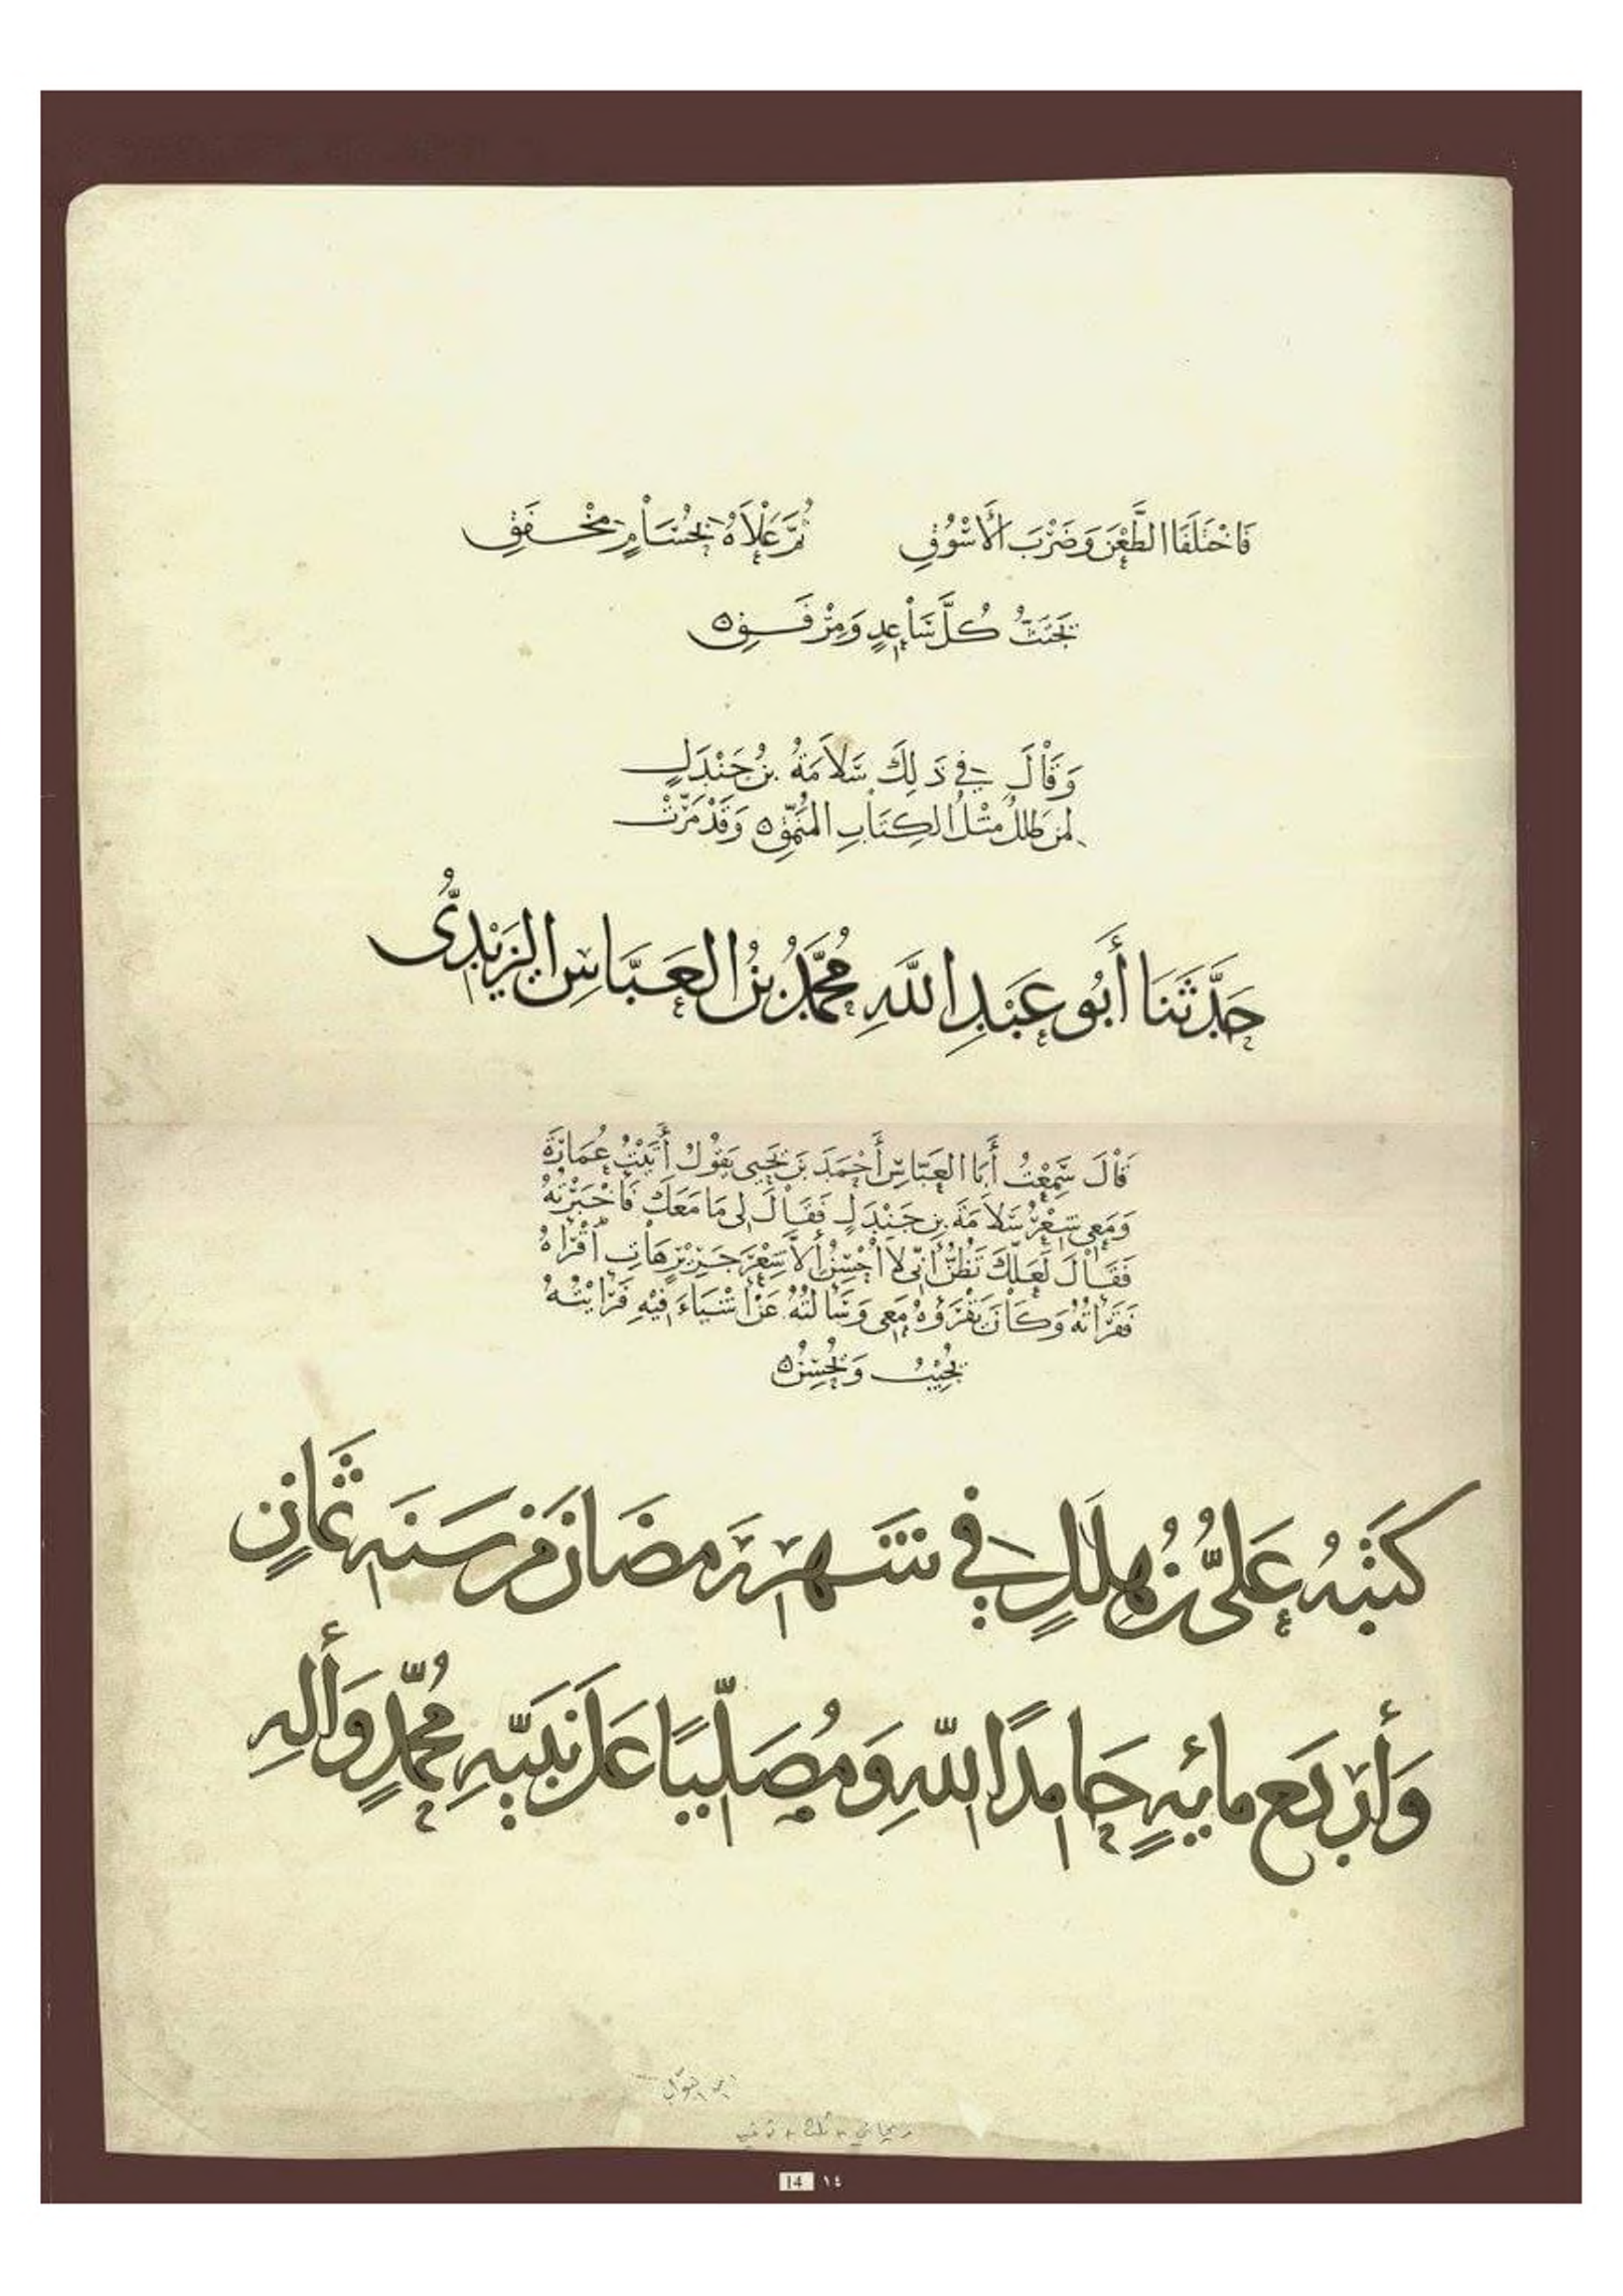 فَاخْتَلَفَا الطَّعْنَ وَضَرْبَ الْأَسْوُقِ ثُمَّ عَلَاهُ بِحُسَامٍ مِخْفَقِ
تَحْتَ كُلِّ سَاعِدٍ وَمِرْفَقِ ه
وَقَالَ فِي ذَلِكَ سَلَامَةُ بْنُ جَنْدَلٍ
لِمَنْ طَلَلٌ مِثْلُ الْكِتَابِ الْمُنَمَّقِ ه وَقَدْ مَرَّتْ
حَدَّثَنَا أَبُو عَبْدِ اللَّهِ مُحَمَّدُ بْنُ الْعَبَّاسِ الْيَزِيْدِيُّ
قَالَ سَمِعْتُ أَبَا الْعَبَّاسِ أَحْمَدَ بْنَ يَحْيَى يَقُوْلُ أَتَيْتُ عُمَارَةَ
وَمَعِي شِعْرُ سَلَامَةَ بْنِ جَنْدَلٍ فَقَالَ لِي مَا مَعَكَ فَأَخْبَرْتُهُ
فَقَالَ لَعَلَّكَ تَظُنُّ أَنِّي لَا أُحْسِنُ أَلَا شِعْرَ جَرِيْرٍ هَاتِ أَقْرَأْهُ
فَقَرَأْتُهُ وَكَانَ يَقْرَؤُهُ مَعِي وَسَأَلْتُهُ عَنْ أَشْيَاءَ فِيْهِ فَرَأَيْتُهُ
يُجِيْبُ وَيُحْسِنُ ه
كَتَبَهُ عَلِيُّ بْنُ هِلَالٍ فِي شَهْرِ رَمَضَانَ مِنْ سَنَةِ ثَمَانٍ
وَأَرْبَعِ مِائَةٍ حَامِدًا لِلَّهِ وَمُصَلِّيًا عَلَى نَبِيِّهِ مُحَمَّدٍ وَآلِهِ
ابن البواب
ريحاني - ثلث - توقيع
14 ١٤